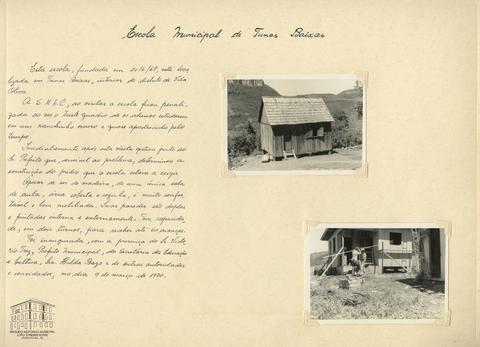 Escola Municipal de Tunas Baixas
Esta escola, fundada em 20/6/68, está loca-
lizada em Tunas Baixas, interior do distrito de Vila
Oliva.
A S.M.E.C., ao visitar a escola ficou penali-
zada ao ver o triste quadro de os alunos estudarem
em um ranchinho escuro e quase apodrecido pelo
tempo.
Imediatamente após esta visita opinou junto ao
Sr. Prefeito que, sensível ao problema, determinou a
construção do prédio que a escola estava a exigir.
Apesar de ser de madeira, de uma única sala
de aula, área coberta e cozinha, é muito confor-
tável e bem mobiliada. Suas paredes são duplas
e pintadas interna e externamente. Tem capacida-
de, em dois turnos, para receber até 60 crianças.
Foi inaugurada, com a presença do Sr. Vitó-
rio Trez, Prefeito Municipal, da Secretária de Educação
e Cultura, Sra. Gilda Bozo e de outras autoridades
e convidados, no dia 9 de março de 1970.
ARQUIVO HISTÓRICO MUNICIPAL
JOÃO SPADARI ADAMI